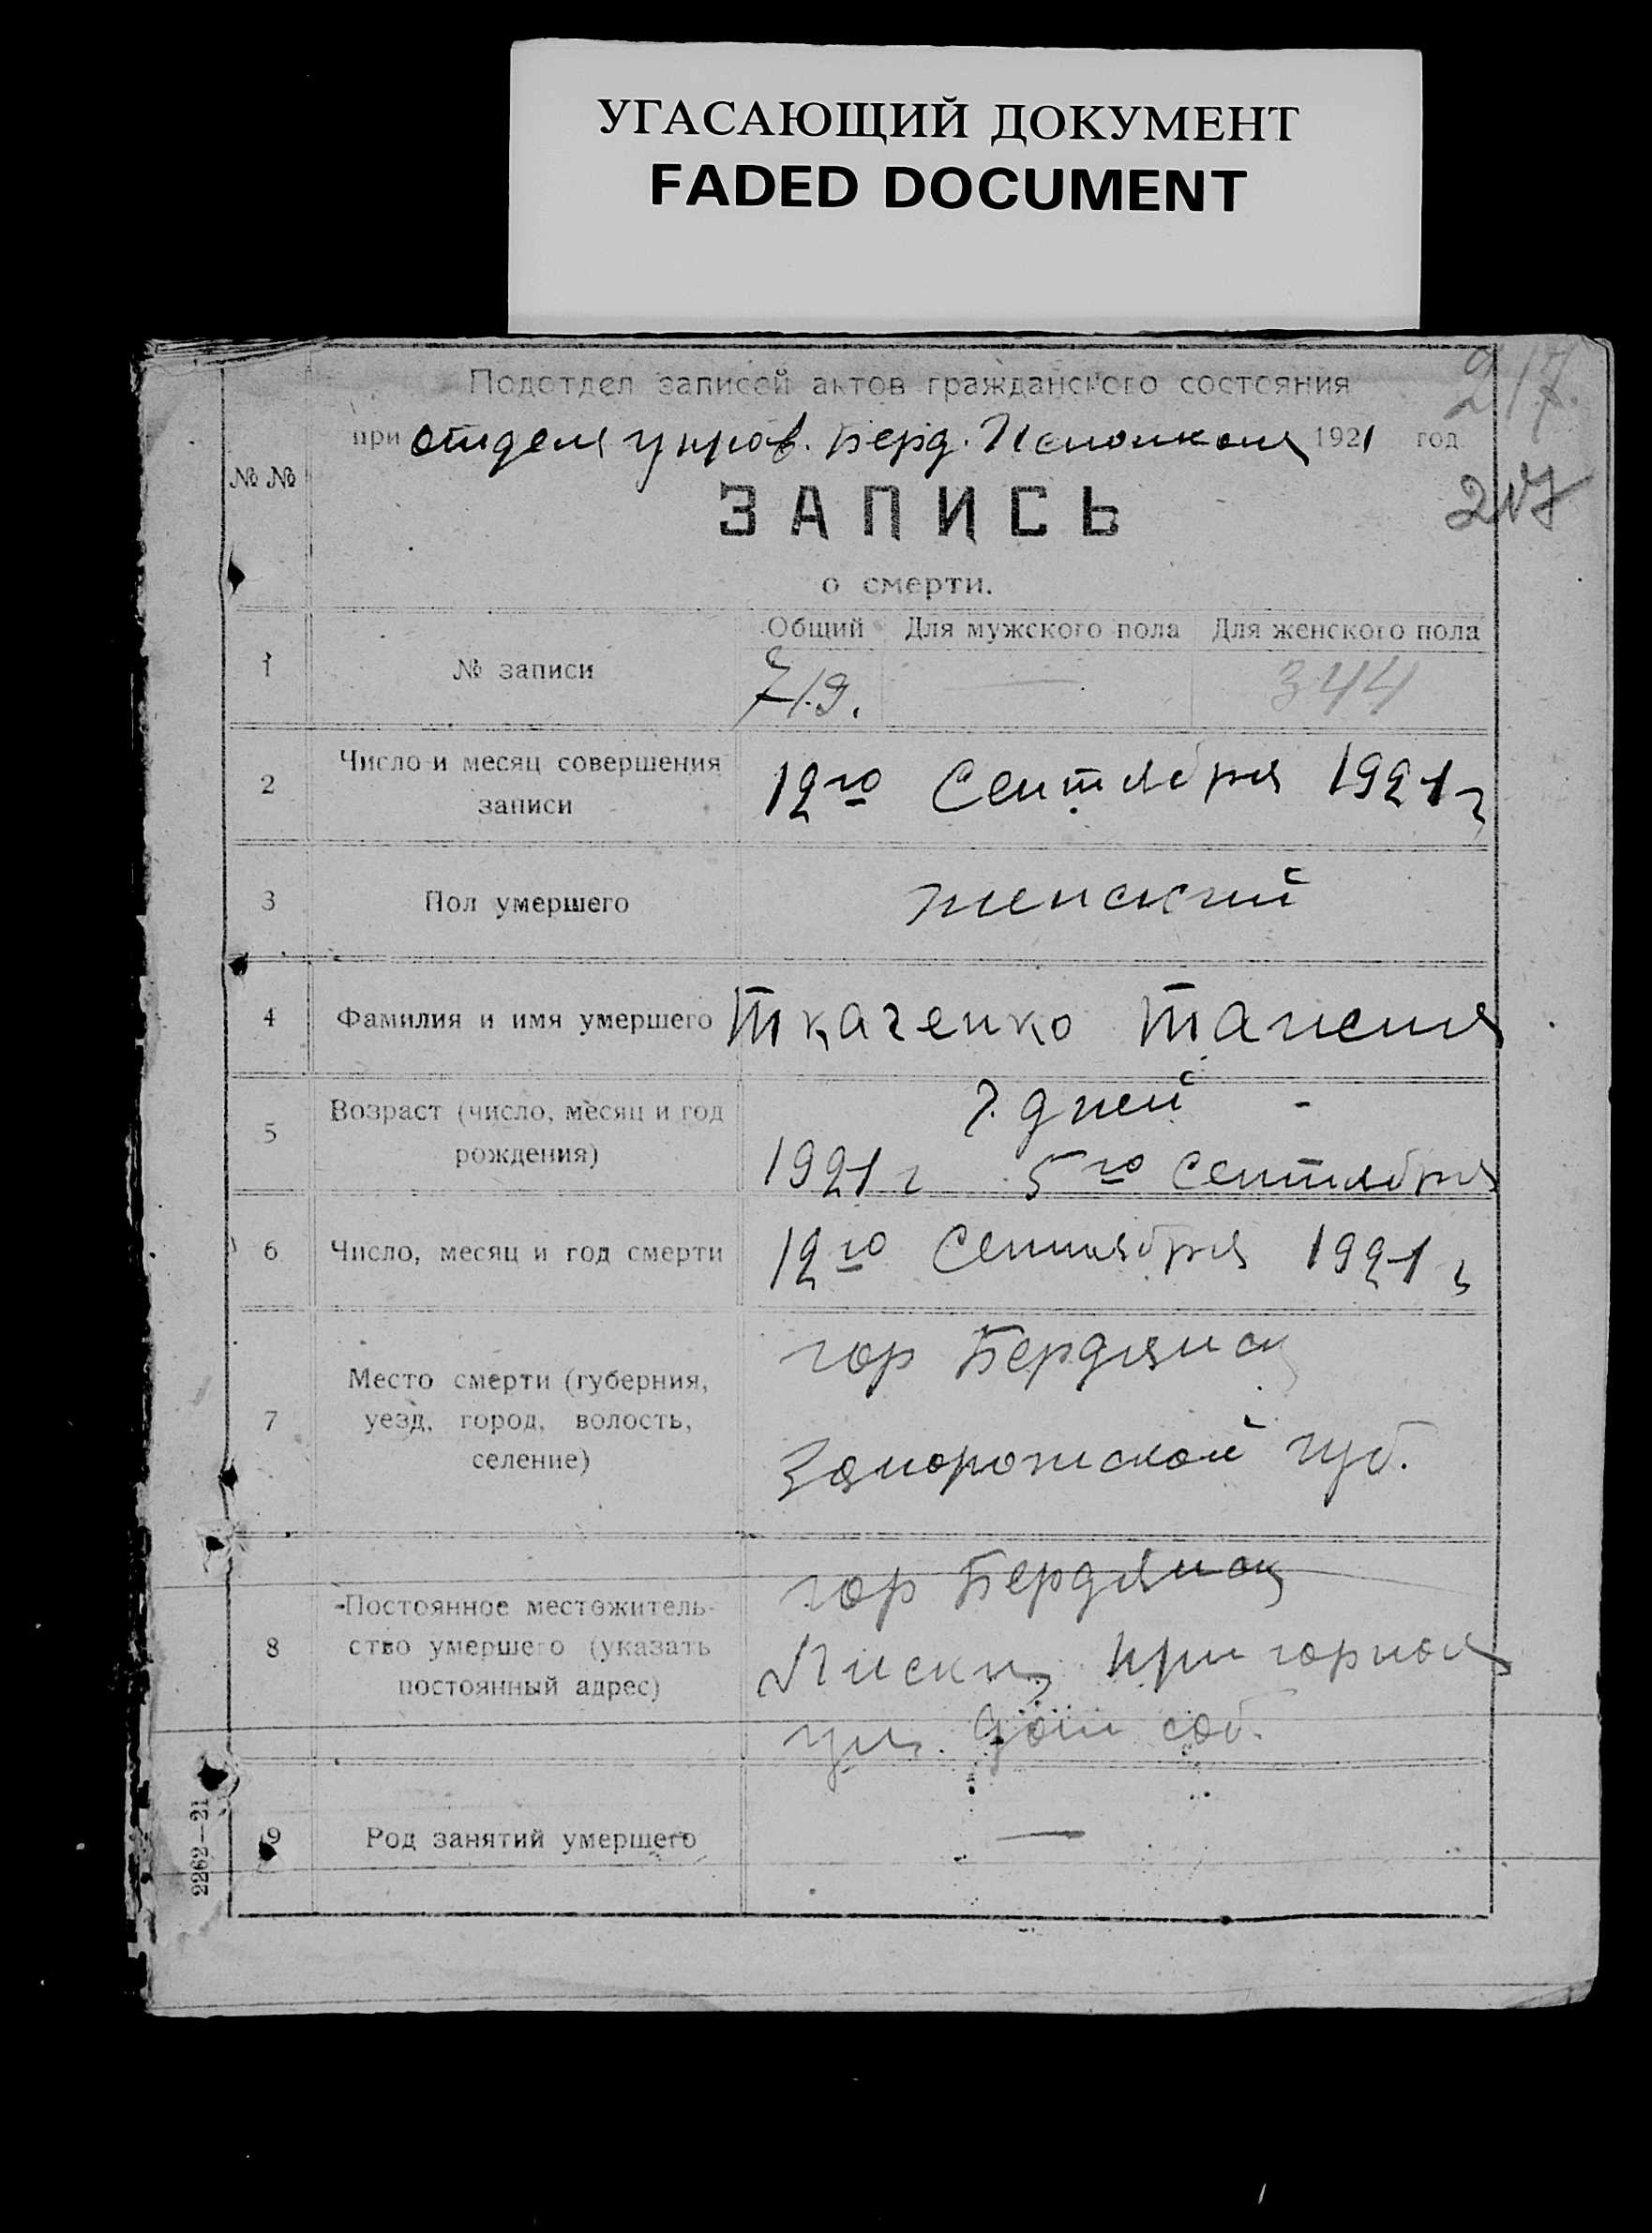 УГАСАЮЩИЙ ДОКУМЕНТ
FADED DOCUMENT
217.
217
Подотдел записей актов гражданского состояния
при отделе управ. Берд. Исполкома 1921 год
№ №
ЗАПИСЬ
о смерти.
Общий Для мужского пола Для женского пола
1 № записи 719. — 344
2 Число и месяц совершения
записи
12го Сентября 1921 г
3 Пол умершего женский
4 Фамилия и имя умершего Ткаченко
5 Возраст (число, месяц и год
рождения)
7 дней -
1921 г 5го Сентября
6 Число, месяц и год смерти 12го Сентября 1921 г
7 Место смерти (губерния,
уезд, город, волость,
селение)
гор Бердянск
Запорожской губ.
8 Постоянное местожитель-
ство умершего (указать
постоянный адрес)
гор Бердянск
Лиски, пригорная
ул. дом соб.
9 Род занятий умершего —
2262—21